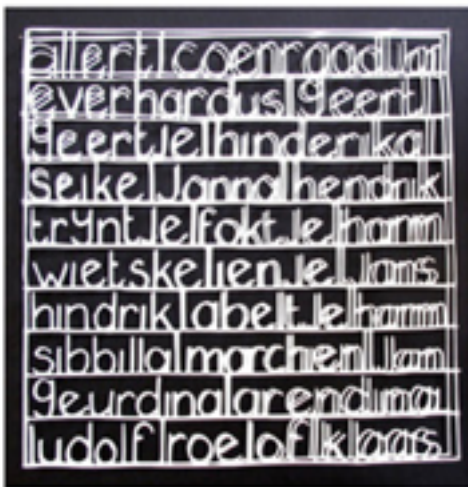 allert coenraad jan
everhardus geert
geertje hinderika
seike janna hendrik
tryntje foktje harm
wietske lienje jans
hindrik abeltje harm
sibbilla marchien jan
geurdina arendina
ludolf roelof klaas